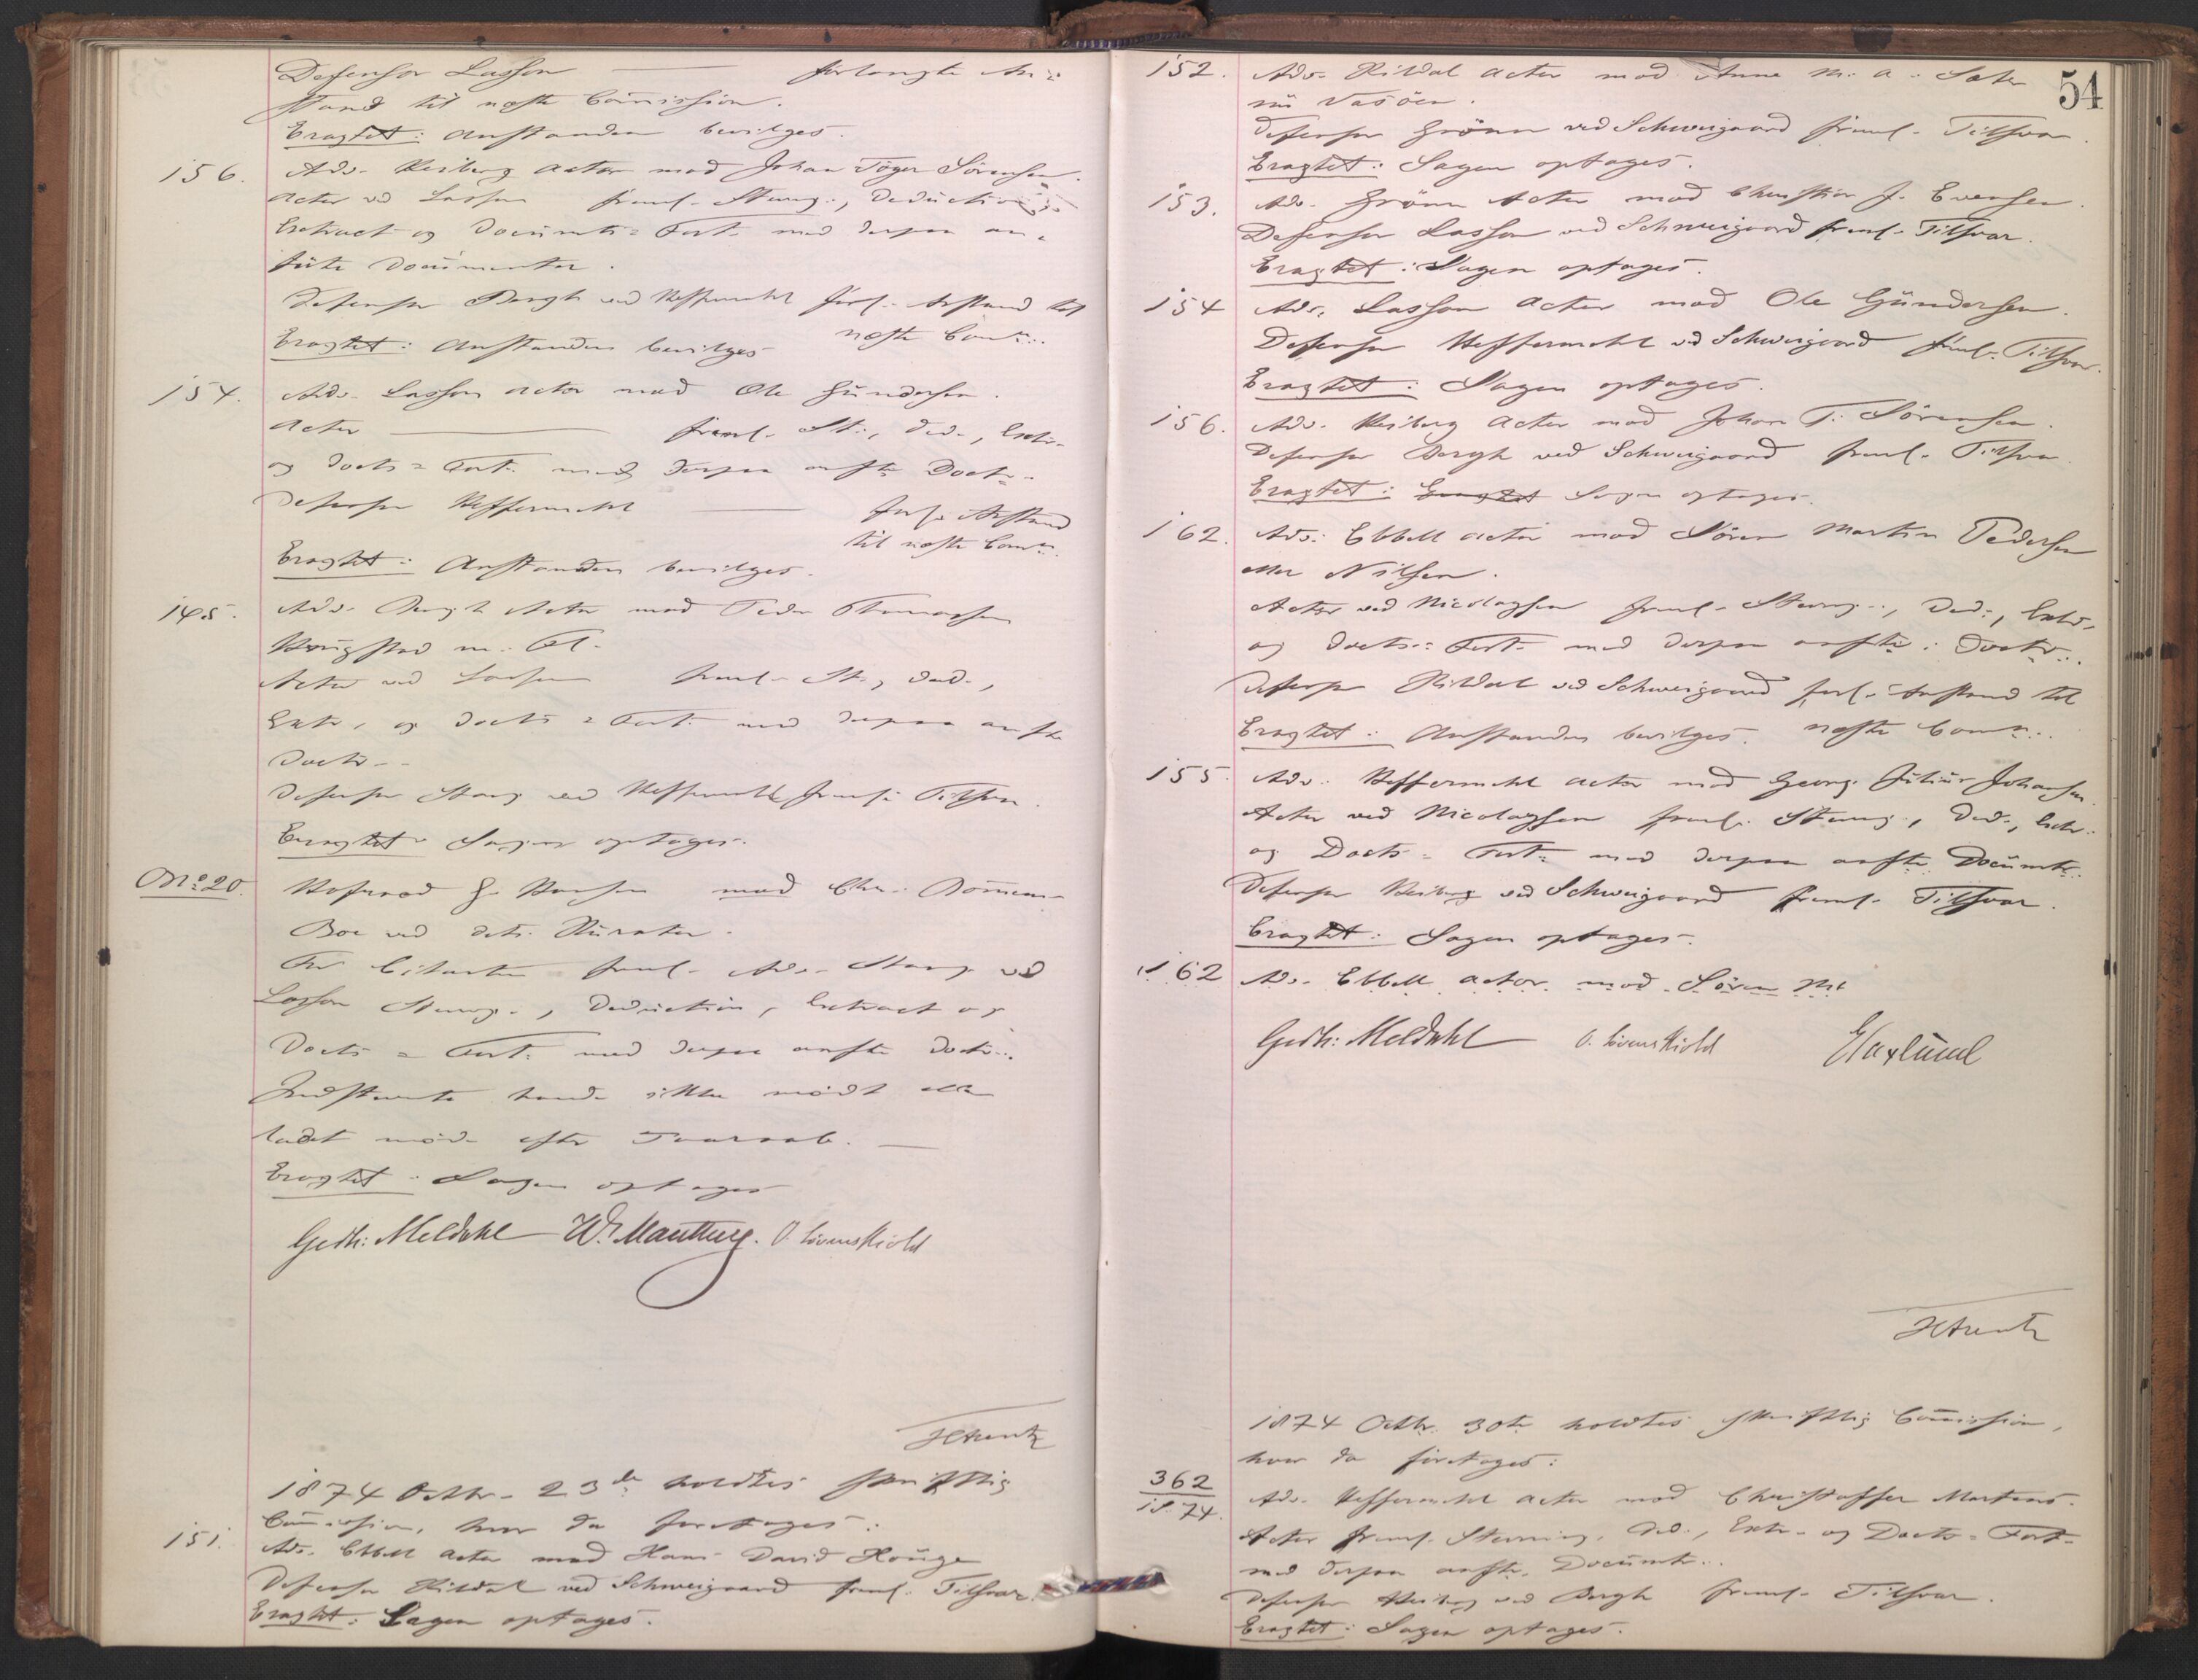 Defensor Lasson forlangte An=
stand til næste Commission.
Eragtet: Anstanden bevilges.
156. Adv. Heiberg Actor mod Johan Töger Sörensen.
Actor ved Lasson freml. Stevng., Deductions
Extract og Documts= Fort. med derpaa an=
førte Documenter.
Defensor Bergh ved Heffermehl forl. Anstand til
næste Comn..
Eragtet: Anstanden bevilges
154. Adv. Lasson Actor mod Ole Gundersen.
Actor freml. St., Ded., Extr.
og Docts= Fort. med derpaa anfte Doctr.
Defensor Heffermehl forl. Anstand
til næste Comn.
Eragtet: Anstanden bevilges.
145. Adv. Bergh Actor mod Peder Thomassen
Haugstad m. Fl.
Actor ved Lasson freml. St., Ded.,
Extr. og Docts= Fort. med derpaa anfte
Doctr..
Defensor Stang ved Heffermehl freml. Tilsvar.
Eragtet: Sagen optages.
No 20. mod Chr.
Boe ved dets Kurator.
For Citanten freml. Adv. Stang ved
Lasson Stevng., Deduction, Extract og
Docts= Fort. med derpaa anfte Doctr..
Indstevnte havde ikke mødt eller
ladet møde efter Paaraab.
Eragtet: Sagen optages
Gedh: Meldahl W. Manthey. O. Løvenskiold
HArentz
1874 Octbr. 23de holdtes skriftlig
Commission, hvor da foretoges:
151. Adv. Ebbell Actor mod Hans David Houge
Defensor Kildal ved Schweigaard freml. Tilsvar.
Eragtet: Sagen optages.
54
152. Adv. Kildal Actor mod Anne M. A. Sæter
nu Vasöen.
Defensor Grönn ved Schweigaard freml. Tilsvar.
Eragtet: Sagen optages.
153. Adv. Grönn Actor mod Christian J. Evensen.
Defensor Lasson ved Schweigaard freml. Tilsvar.
Eragtet: Sagen optages.
154 Adv. Lasson Actor mod Ole Gündersen.
Defensor Heffermehl ved Schweigaard freml. Tilsvar.
Eragtet: Sagen optages.
156. Adv. Heiberg Actor mod Johan T. Sörensen.
Defensor Bergh ved Schweigaard freml. Tilsvar.
Eragtet: Eragtet Sagen optages.
162. Adv. Ebbell Actor mod Sören Martin Pedersen
eller Nilsen.
Actor ved Nicolaysen freml. Stevng., Ded., Extr.
og Docts= Fort. med derpaa anfte Doctr..
Defensor Kildal ved Schweigaard forl. Anstand til
næste Comn..
Eragtet: Anstanden bevilges.
155. Adv. Heffermehl Actor mod Georg Julius Johansen.
Actor ved Nicolaysen freml. Stevng., Ded., Extr.
og Docts= Fort. med derpaa anfte Documtr.
Defensor Heiberg ved Schweigaard freml. Tilsvar.
Eragtet: Sagen optages.
162 Adv. Ebbell Actor mod Sören Mt
Gedh: Meldahl O. Løvenskiold EHaxlund
HArentz
1874 Octbr. 30te holdtes skriftlig Commission,
hvor da foretoges:
362
1874. Adv. Heffermehl Actor mod Christoffer Martens.
Actor freml. Stevning, Ded., Extr. og Docts= Fort.
med derpaa anfte Documtr..
Defensor Heiberg ved Bergh freml. Tilsvar.
Eragtet: Sagen optages.